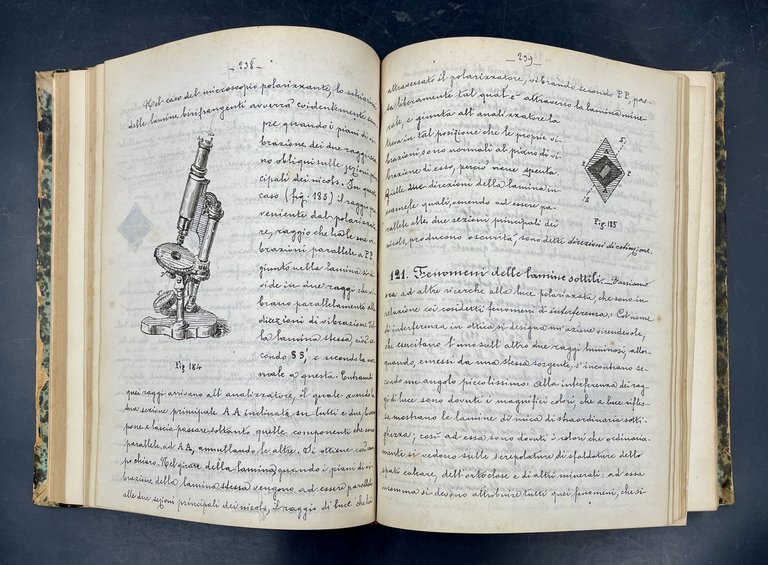 — 238 —
Nel caso del microscopio polarizzante, lo
delle lamine birifrangenti avverrà evidentemente sem
pre quando i piani di vi
brazione dei due raggi sia
no obliqui sulle sezioni prin
cipali dei nicols. In questo
caso (fig. 185) il raggio pro
veniente dal polarizzato
re, raggio che ha le sue vi
brazioni parallele a P.P.
giunto nella lamina si di
vide in due raggi che vi
brano parallelamente alle
direzioni di vibrazione del
la lamina stessa, cioè se
condo SS', e secondo la nor
male a questa. Entrambi
Fig 184
quei raggi arrivano all'analizzatore, il quale avendo la
sua sezione principale AA inclinata su tutti e due, li
pone e lascia passare soltanto quelle componenti che sono
parallele ad AA, annullando le altre. Si ottiene così cam
po chiaro. Nel girare della lamina quando i piani di vi
brazione della lamina stessa vengono ad essere paralleli
alle due sezioni principali dei nicols, il raggio di luce che ha
— 239 —
attraversato il polarizzatore, vibrando secondo P.P., pas
sa liberamente tal qual è attraverso la lamina mine
rale, e giunta all'analizzatore la
trova in tal posizione che le proprie vi
brazioni sono normali al piano di vi
brazione di esso, perciò viene spenta.
Quelle due direzioni della lamina in
esame le quali, venendo ad essere pa
rallele alle due sezioni principali dei
nicols, producono oscurità, sono dette direzioni di estinzione.
Fig. 185
121. Fenomeni delle lamine sottili. — Passiamo
ora ad altre ricerche alla luce polarizzata, che sono in
relazione coi cosidetti fenomeni di interferenza. Col nome
di interferenza in ottica si designa un'azione vicendevole,
che esercitano l'uno sull'altro due raggi luminosi, allor
quando, emessi da una stessa sorgente, s'incontrano se
condo un angolo piccolissimo. Alla interferenza dei rag
gi di luce sono dovuti i magnifici colori che a luce rifles
sa mostrano le lamine di mica di straordinaria sotti
gliezza; così ad essa sono dovuti i colori che ordinaria
mente si vedono sulle screpolature di sfaldature dello
spato calcare, dell'ortoclose e di altri minerali: ad essa
insomma si devono attribuire tutti quei fenomeni, che si